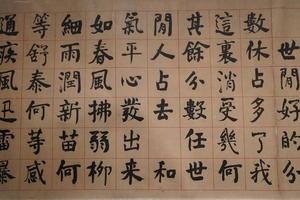 世閒好的分
數休占多了我
這裏消受幾何
其餘分數任世
閒人占去和
氣平心發出来
如春風拂弱柳
細雨潤新苗何
等舒泰何等感
通疾風迅雷暴